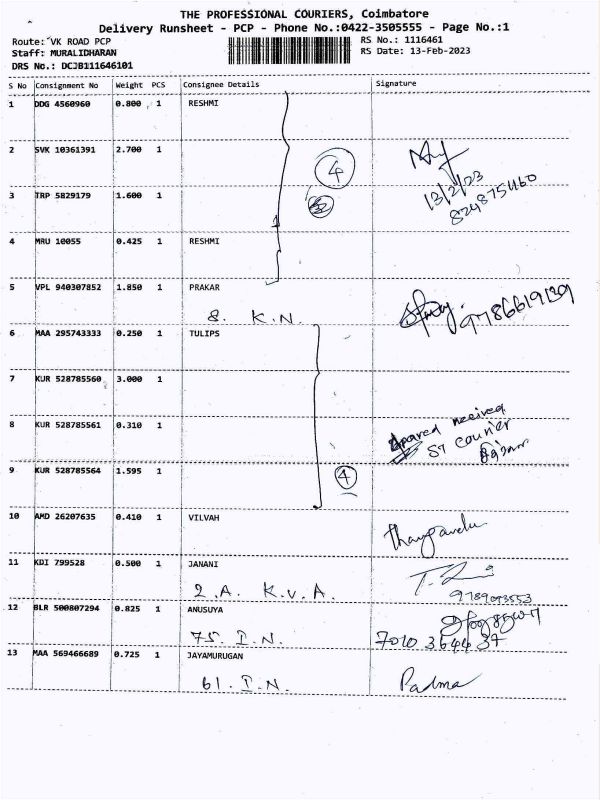 THE PROFESSIONAL COURIERS, Coimbatore
Delivery Runsheet - PCP - Phone No.:0422-3505555 - Page No.:1
Route: VK ROAD PCP
RS No.: 1116461
Staff: MURALIDHARAN
RS Date: 13-Feb-2023
DRS No.: DCJB111646101
S No Consignment No Weight PCS Consignee Details Signature
1 DDG 4560960 0.800 1 RESHMI
2 SVK 10361391 2.700 1
4
13/2/23
3 TRP 5829179 1.600 1
4 MRU 10055 0.425 1 RESHMI
5 VPL 940307852 1.850 1 PRAKAR
8. K.N.
9786619139
6 MAA 295743333 0.250 1 TULIPS
7 KUR 528785560 3.000 1
8 KUR 528785561 0.310 1
received
ST courier
9 KUR 528785564 1.595 1
4
10 AMD 26207635 0.410 1 VILVAH
11 KDI 799528 0.500 1 JANANI
2.A. K.V.A.
12 BLR 500807294 0.825 1 ANUSUYA
75. I.N.
7010 364437
13 MAA 569466689 0.725 1 JAYAMURUGAN
61. I.N. Padma